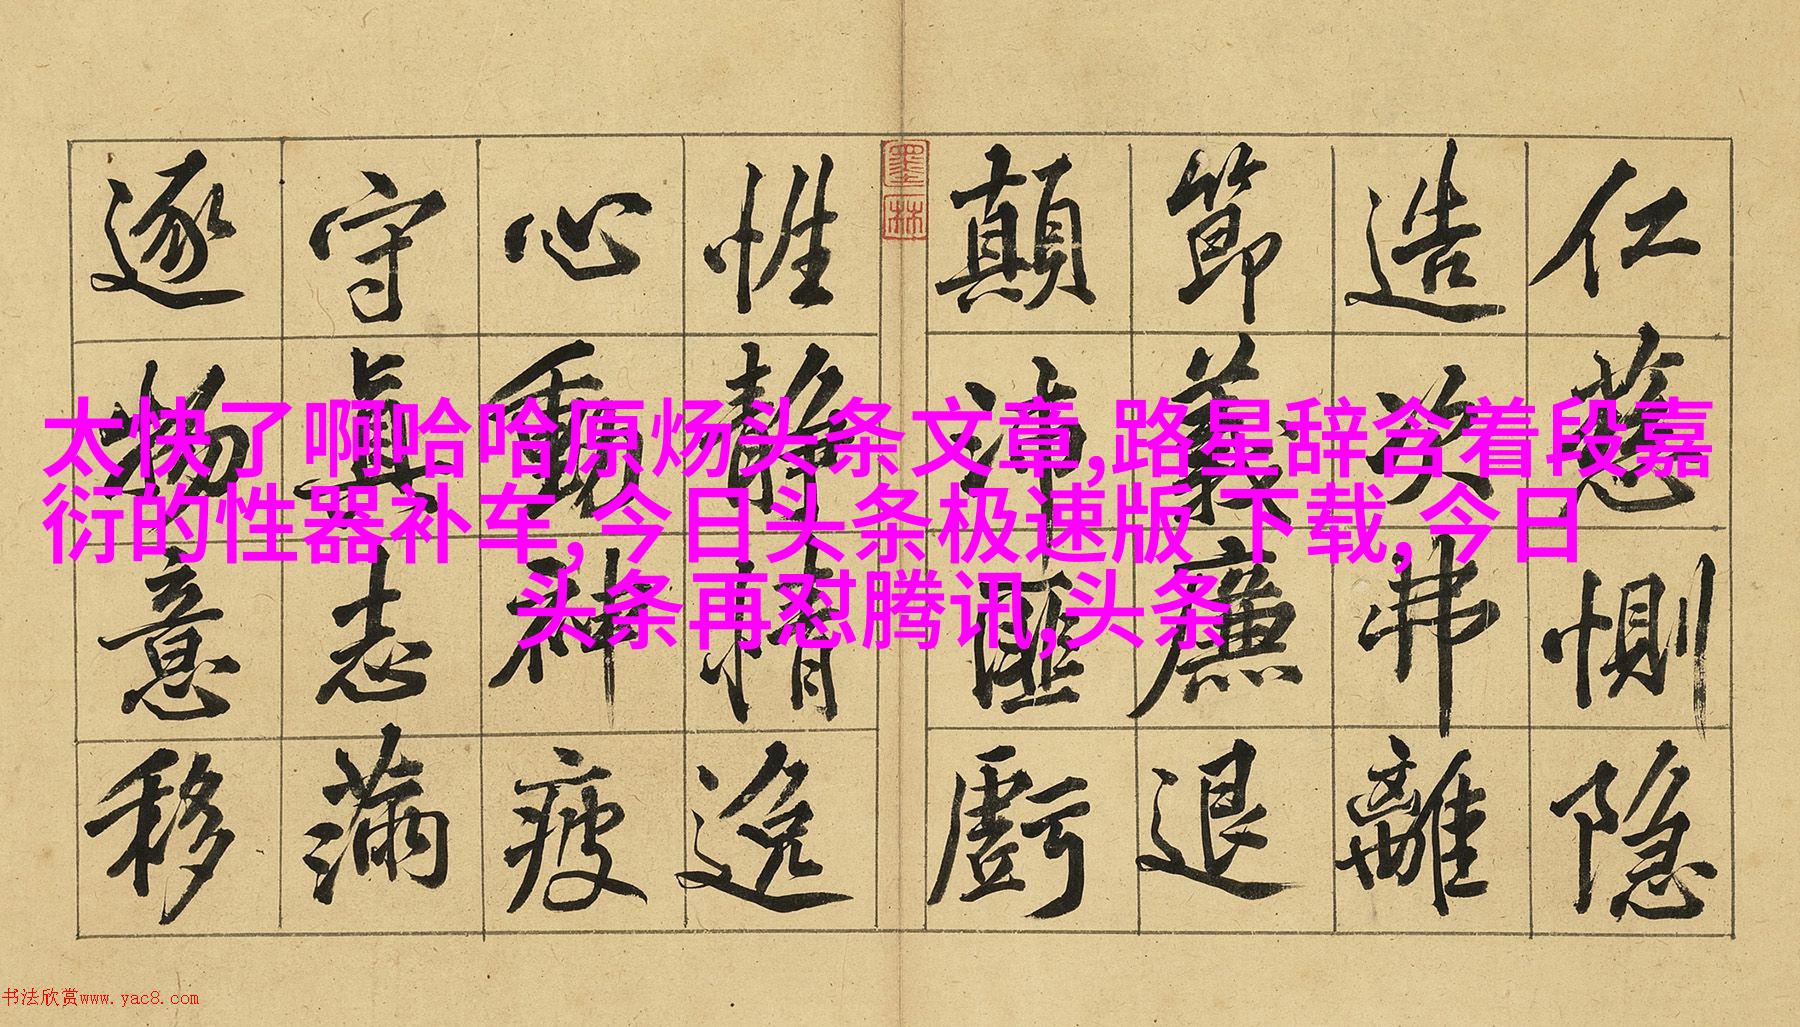 仁慈惻隱
造次弗離
節義廉退
顛沛匪虧
墨林
性靜情逸
心動神疲
守真志滿
逐物意移
太快了啊哈哈原炀头条文章,路星辞含着段嘉
衍的性器补车, 今日头条极速版 下载, 今日
头条再怼腾讯,头条
书法欣赏www.yac8.com